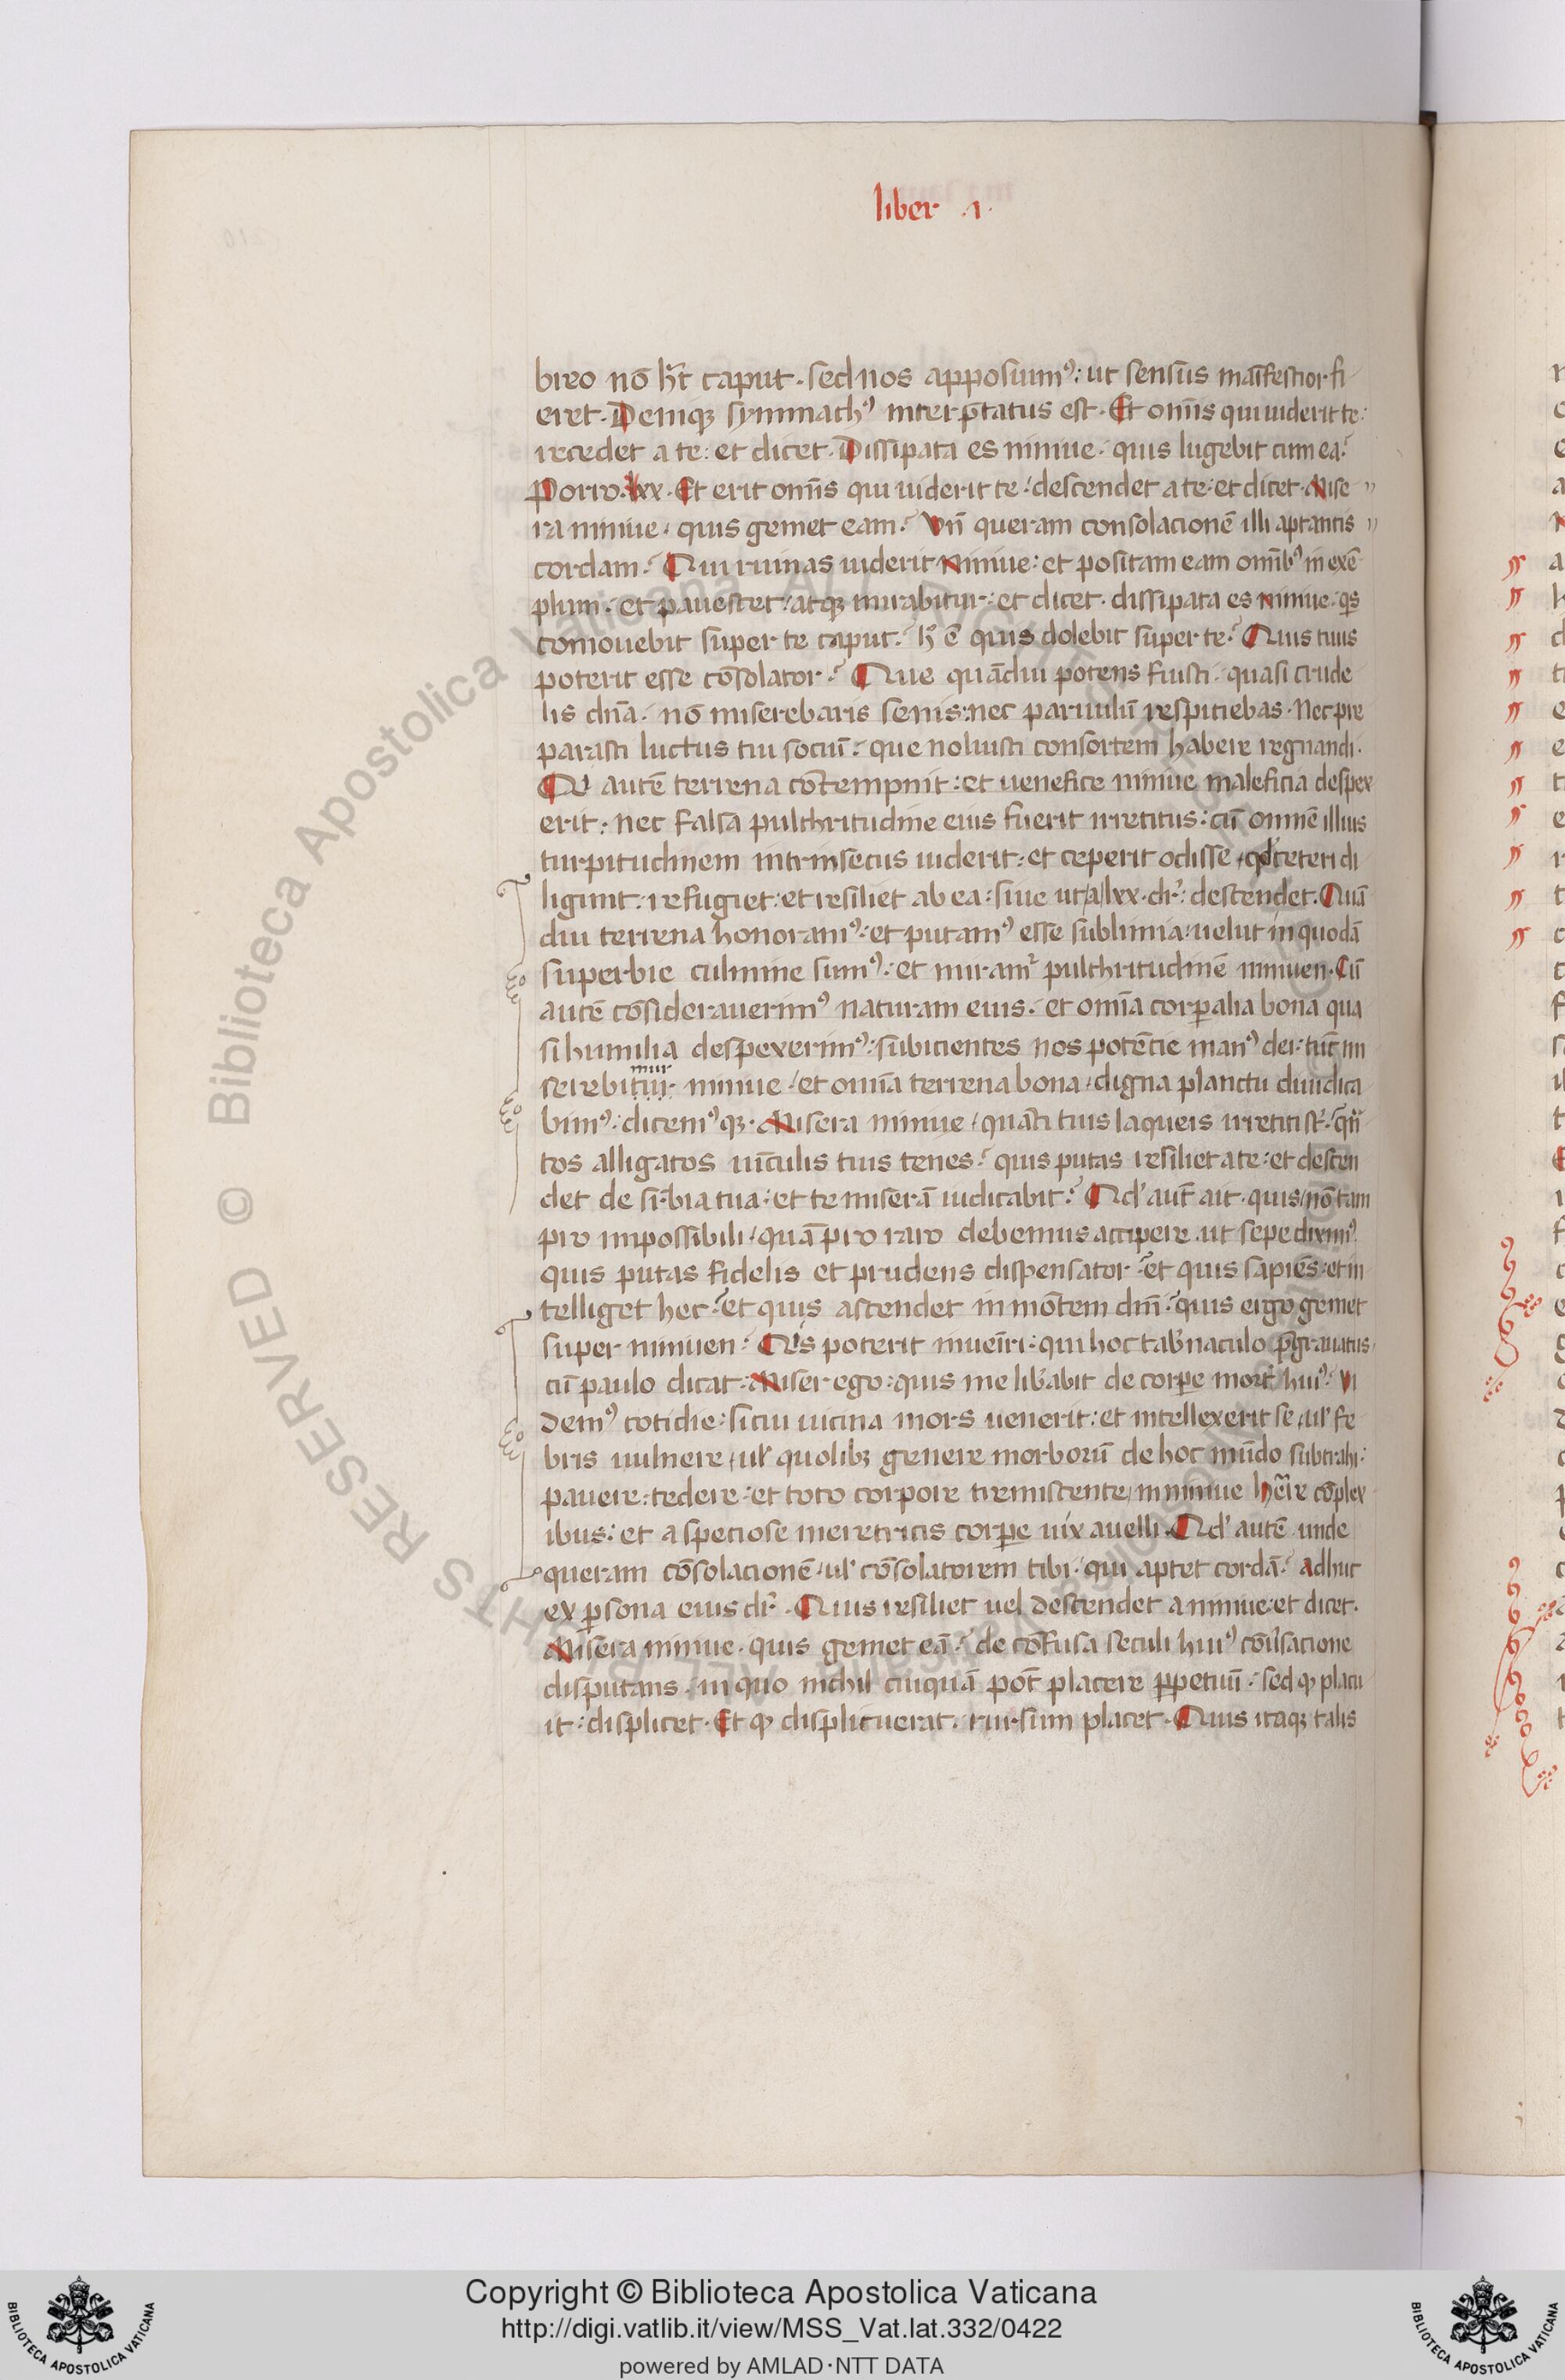 liber .1.
breo nō hr̄t caput. sed nos apposuimꝰ: ut sensus maīfestior fi
eret. Deniqꝫ symmachꝰ interp̄tatus est. Et om̄is qui uiderit te:
recedet a te: et dicet. Dissipata es niniue. quis lugebit cum ea?
Porro .lxx. Et erit om̄is qui uiderit te: descendet a te: et dicet. Mise
ra niniue. quis gemet eam? Vn̄ queram consolacionē illi aptantis
cordam? Qui ruinas uiderit Niniue: et positam eam om̄ibꝰ in exē
plum: et pauescet / atqꝫ mirabitur: et dicet. dissipata es Niniue. qͥs
comouebit super te caput? h̄ ē quis dolebit super te? Quis tuus
poterit esse cōsolator? Que quādiu potens fuisti: quasi crude
lis dn̄a. nō miserebaris senis: nec paruulū respiciebas. Nec pre
parasti luctus tui sociū: que noluisti consortem habere regnandi.
Qui autē terrena cōtempnit: et uenefice niniue maleficia despex
erit: nec falsa pulchritudine eius fuerit irretitus: cū omnē illius
turpitudinem intrinsecus uiderit: et ceperit odisse / qd ceteri di
ligunt: refugiet: et resiliet ab ea: siue ut a lxx. dr̄: descendet. Quā
diu terrena honoramꝰ: et putamꝰ esse sublimia: uelut in quodā
superbie culmine sumꝰ: et miramr̄ pulchritudinē niniuen. Cū
autē cōsiderauerimꝰ naturam eius: et om̄ia corꝑalia bona qua
si humilia despexerimꝰ: subicientes nos potēcie manꝰ dei: tūc mi
serebitur mur niniue: et om̄ia terrena bona / digna planctu diiudica
bimꝰ: dicemꝰqꝫ. Misera niniue / quāti tuis laqueis irretiti st̄: qn̄
tos alligatos uīculis tuis tenes? quis putas resiliet a te: et descen
det de suꝑbia tua: et te miserā iudicabit? Qd' aut̄ ait. quis / nō tam
pro impossibili / quā pro raro debemus accipere. ut sepe diximꝰ.
quis putas fidelis et prudens dispensator? et quis sapiēs: et in
telliget hec? et quis ascendet in mōtem dn̄i? quis ergo gemet
super niniuen? Qͥs poterit inueīri: qui hoc tab'naculo p̄grauatus
cū paulo dicat. Miser ego: quis me lib'abit de corꝑe mort' huiꝰ? Vi
demꝰ cotidie: si cui uicina mors uenerit: et intellexerit se / ul' fe
bris uulnere / ul' quolibꝫ genere morborū de hoc mūdo subtrahi:
pauere: tedere: et toto corpore tremiscente / in niniue her̄e cōplex
ibus: et a speciose meretricis corꝑe uix auelli. Qd' autē unde
queram cōsolacionē / ul' cōsolatorem tibi: qui aptet cordā? adhuc
ex ꝑsona eius dr̄. Quis resiliet uel descendet a niniue: et dicet.
Misera niniue. quis gemet eā? de cōfusa seculi huiꝰ cōu'sacione
disputans. in quo nichil cuiquā pot̄ placere ꝑpetuū: sed ꝙ placu
it: displicet. Et ꝙ displicuerat. rursum placet. Quis itaqꝫ talis
Copyright © Biblioteca Apostolica Vaticana
http://digi.vatlib.it/view/MSS_Vat.lat.332/0422
powered by AMLAD·NTT DATA